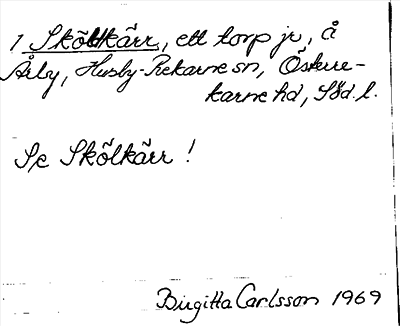 1 Sköltkärr, ett torp jr, å
Årby, Husby-Rekarne sn, Österre-
karne hd, Söd. l.
Se Skölkärr !
Birgitta Carlsson 1969